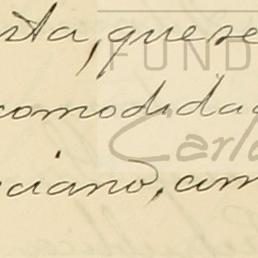 sta, que se
comodida
ciano, com
FUND
Carlo